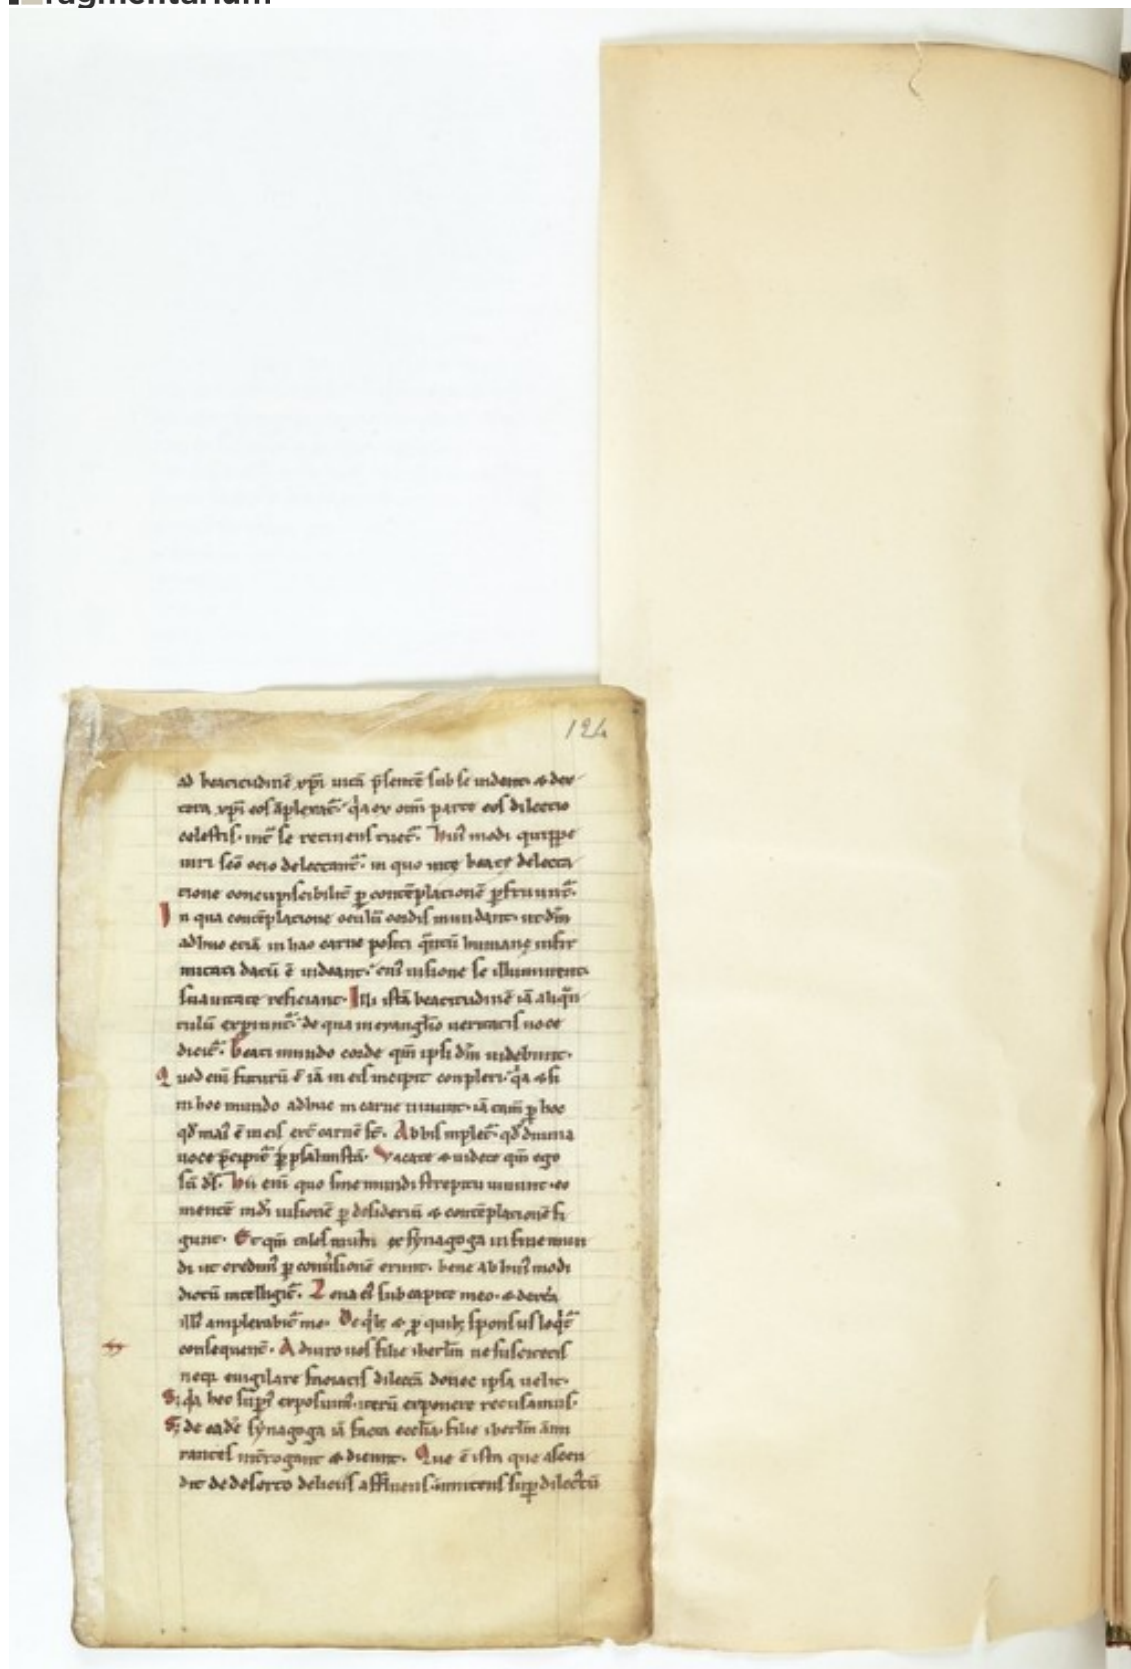 ragmentarium
124
ad beatitudinē xp̄i uitā p̄sentē sub se uident· & dex
tera xp̄i eos āplexat᷑· q̇a ex om̄i parte eos dilectio
celestis· int᷑ se retinens tuet᷑. Hui᷒ modi quippe
uiri sc̄o ocio delectant᷑· in quo uitę beatę delecta
tione concupiscibilit᷑ ꝑ contēplationē ꝑfruunt᷑.
In qua contēplatione oculū cordis mundant· ut dm̄
adhuc etiā in hac carne positi q̄ntū humanę infir
mitati datū ē uideant· ei᷒ uisione se illuminent·
suauitate reficiant· Illi istā beatitudinē iā aliq̄n
tulū exp̄iunt᷑· de qua in eyangl̄io ueritatis uoce
dicit᷑. Beati mundo corde qm̄ ipsi dm̄ uidebunt.
Quod eni᷒ futurū ē iā in eis incipit conpleri· q̇a & si
in hoc mundo adhuc in carne uiuunt· iā tam̄ ꝑ hoc
qd̄ mai᷒ ē in eis ext᷑ carnē st̄. Ab his inplet᷑ qd̄ diuina
uoce p̄cipit᷑ ꝑ psalmistā. Vacate & uidete qm̄ ego
sū ds̄. Hii eni᷒ quo sine mundi strepitu uiuunt· eo
mentē in dī uisionē ꝑ desideriū & contēplationē fi
gunt. Et qm̄ tales multi ex synagoga in fine mun
di ut credim᷒ ꝑ conu᷑sionē erunt· bene ab hui᷒ modi
dictū intelligit᷑. Leua ei᷒ sub capite meo· & dext᷑a
illi᷒ amplexabit᷑ me. De q̇b; & ꝑ quib; sponsus loq̇t᷑
consequent᷑. Adiuro uos filie iherlm̄ ne suscitetis
neq; euigilare faciatis dilectā donec ipsa uelit·
S; q̇a hoc sup᷑i᷒ exposuim᷒· iterū exponere recusamus.
S; de eadē synagoga iā facta eccl̄ia· filie iherlm̄ ām
rantes int᷑rogant & dicunt. Que ē ista que ascen
dit de deserto deliciis affluens· innitens sup̄ dilectū